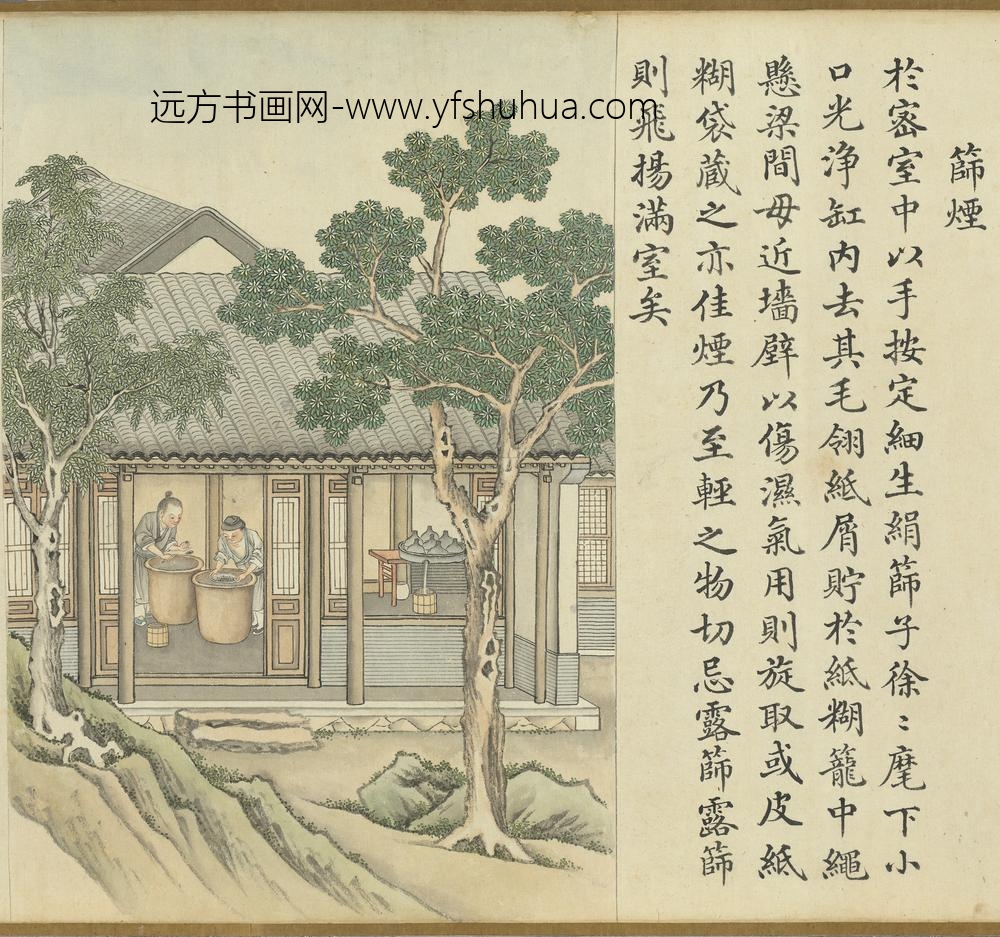 篩煙
於密室中以手按定細生絹篩子徐〻麾下小
口光浄缸内去其毛翎紙屑貯於紙糊籠中繩
懸梁間毋近墻壁以傷濕氣用則旋取或皮紙
糊袋藏之亦佳煙乃至輕之物切忌露篩露篩
則飛揚滿室矣
远方书画网-www.yfshuhua.com